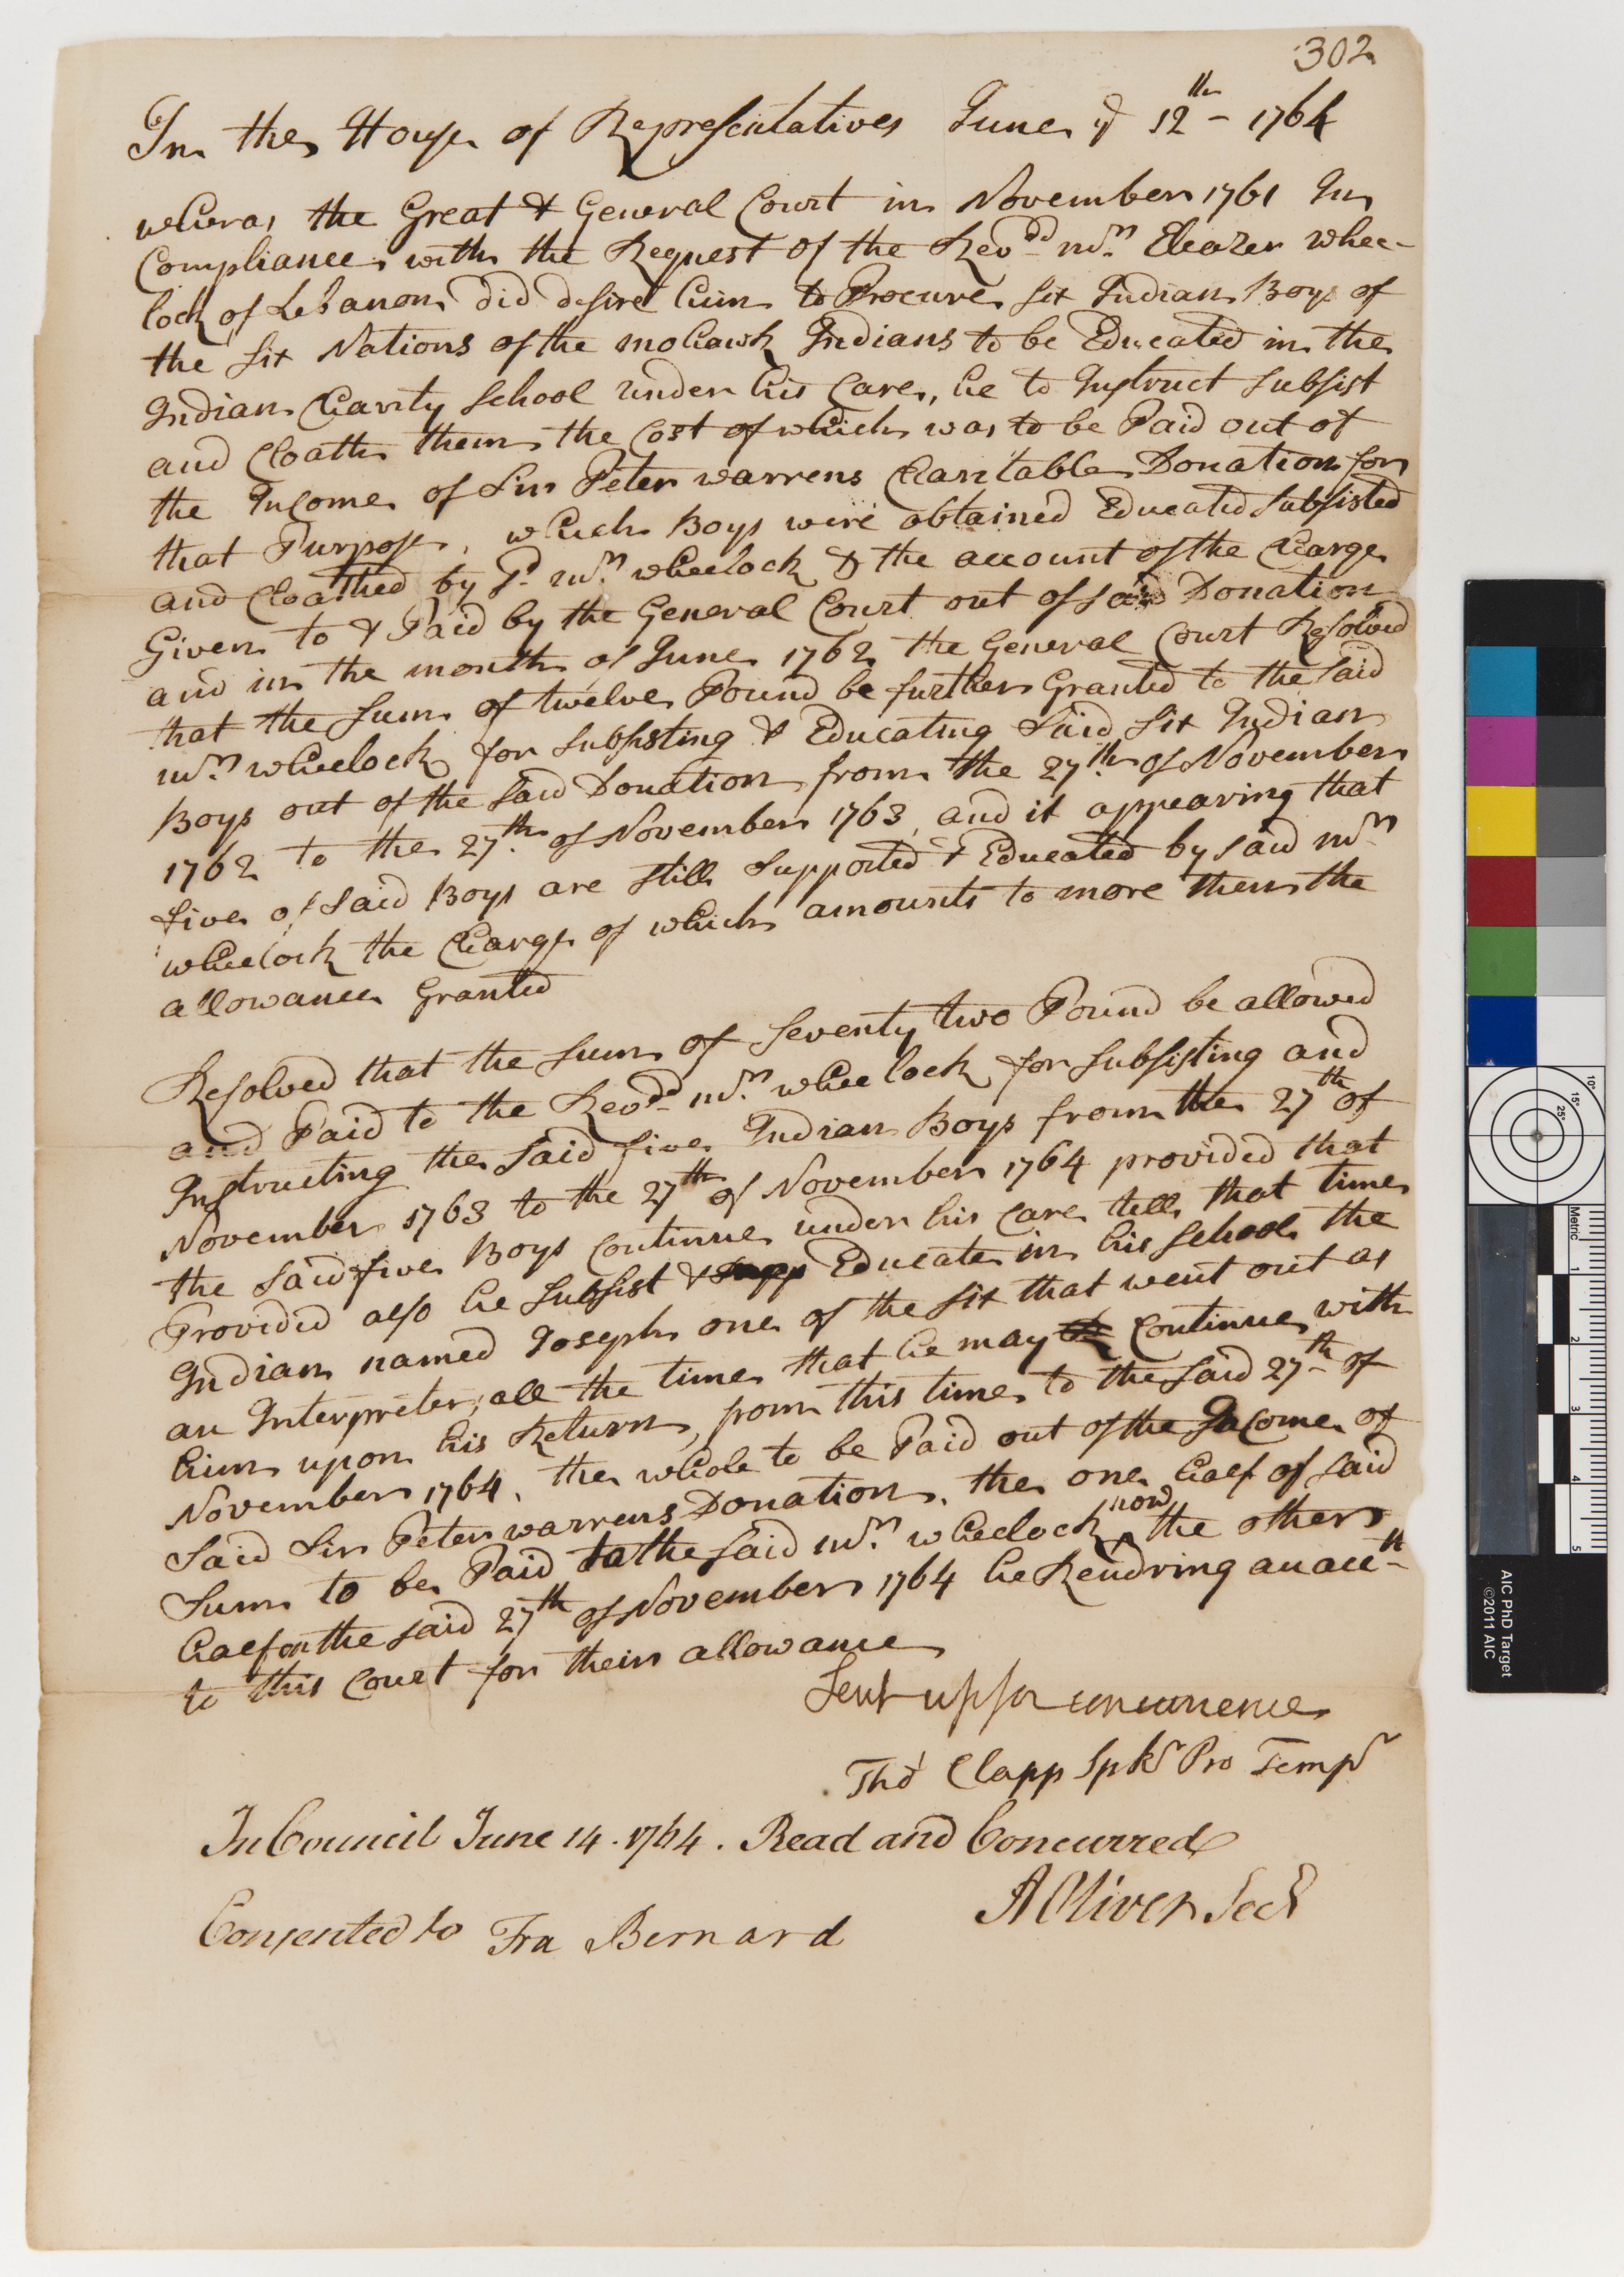 302
In the House of Representatives June ye 12th - 1764
wheras the Great & General Court in November 1761 In
Compliance with the Request of the Revdd mr. Eleazer Whee-
lock of Lebanon did desire him to Procure six Indian Boys of
the six Nations of the mohawk Indians to be Educated in the
Indian Charity School under his Care, he to Instruct subsist
and Cloath them the Cost of which was to be Paid out of
the Income of Sir Peter warrens Charitable Donation for
that Purpose, which Boys were obtained Educated subsisted
and Cloathed by sd. mr. wheelock & the account of the Charge
Given to & Paid by the General Court out of said Donation
and in the month of June 1762 the General Court Resolved
that the sum of twelve Pound be further Granted to the said
mr. wheelock for subsisting & Educating said six Indian
Boys out of the said Donation from the 27th. of November
1762 to the 27th. of November 1763, and it appearing that
five of said Boys are still supported & Educated by said mr.
wheelock the Charge of which amounts to more then the
allowance Granted
Resolved that the sum of seventy two Pound be allowed
and Paid to the Revdd mr. wheelock for subsisting and
Instructing the said five Indian Boys from the 27th of
November 1763 to the 27th of November 1764 provided that
the said five Boys Continue under his Care till that time
Provided also he subsist & supp Educate in his school the
Indian named Joseph one of the six that went out as
an Interpreter, all the time that he may Continue with
him upon his Return, from this time to the said 27th of
November 1764, the whole to be Paid out of the Income of
said Sir Peter warrens Donation, the one half of said
sum to be Paid to the said mr. wheelock now ^ the other
half on the said 27th of November 1764 he Rendring an acctt
to this Court for their allowance
Sent up for concurrence
Thos Clapp Spkr Pro Tempr
In Council June 14. 1764. Read and Concurred
A Oliver Secr
Consented to Fra Bernard
10°
15°
25°
Metric
1
2
3
4
5
AIC PhD Target
©2011 AIC